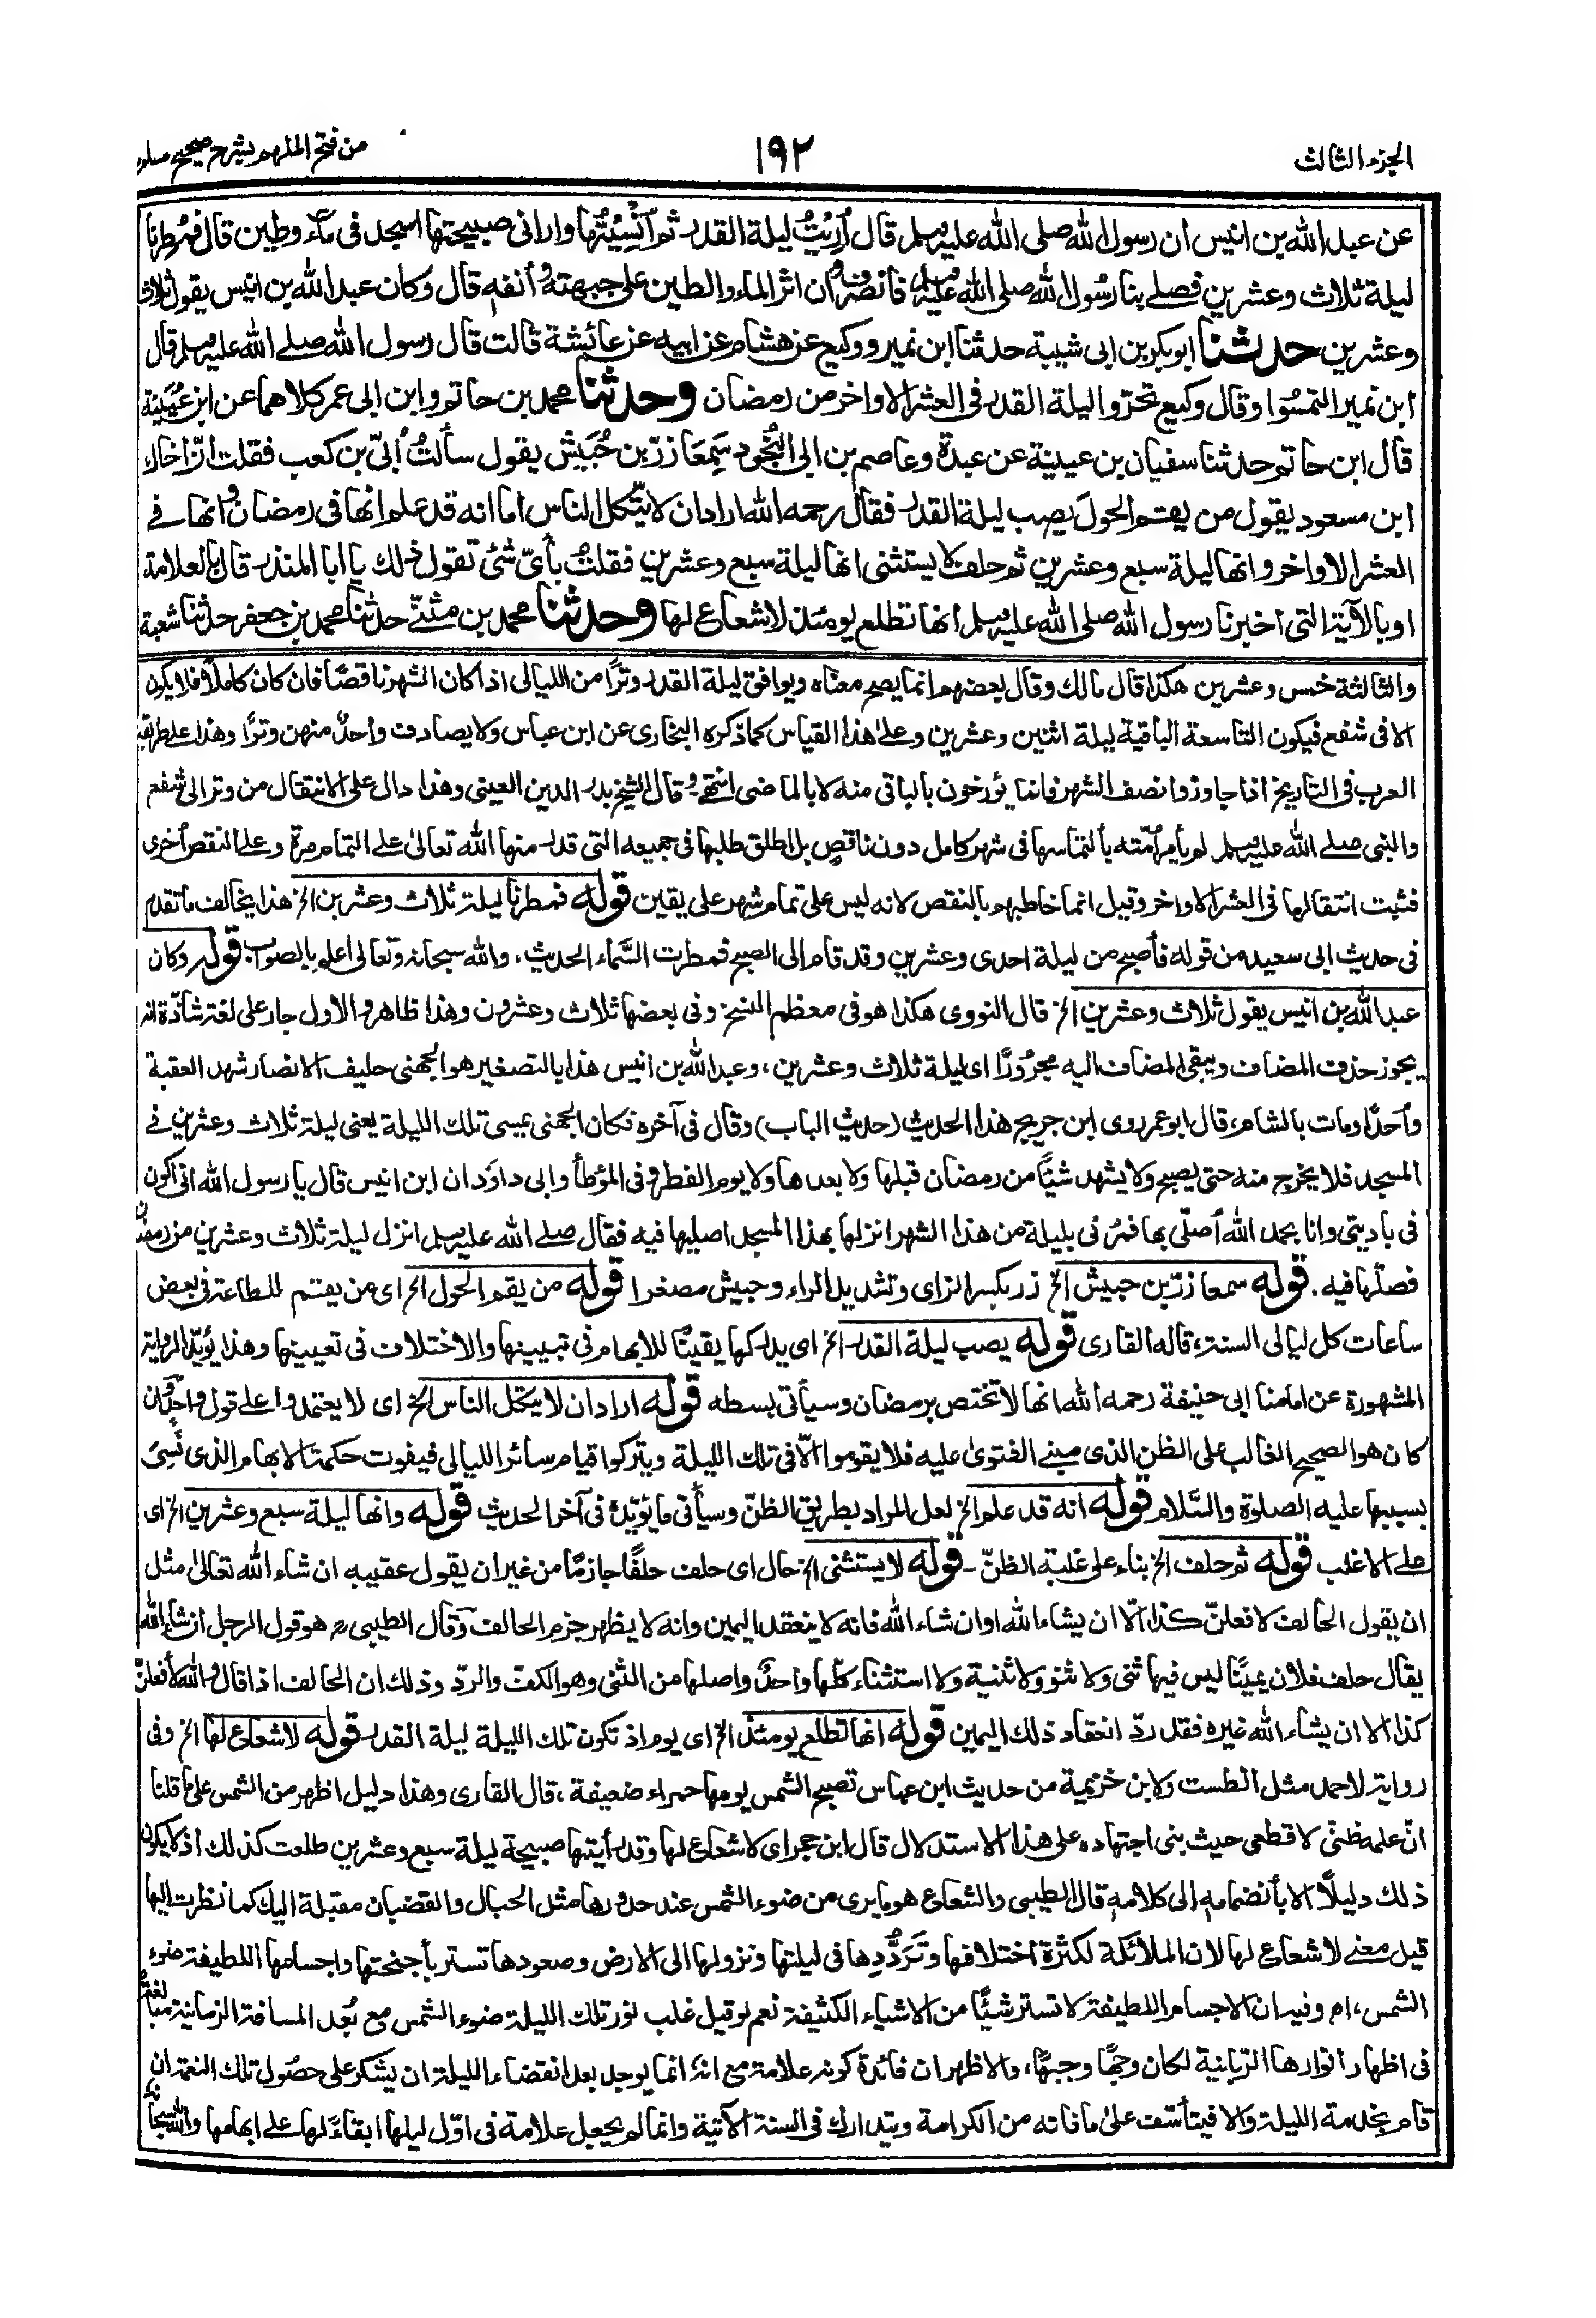 الجزء الثالث
١٩٢
من فتح الملهم بشرح صحيح مسلم
عن عبد الله بن انيس ان رسول الله صلى الله عليه وسلم قال اُرِيْتُ ليلة القدر ثم اُنْسِيْتُها وارانى صبيحتها اسجد فى ماء وطين قال فمُطِرنا
ليلة ثلاث وعشرين فصلے بنا رسُول الله صلى الله عليه وسلم فانصرف وان اثر الماء والطين على جبهته وأنفه قال وكان عبد الله بن انيس يقول ثلاث
وعشرين حدثنا ابوبكر بن ابى شيبة حدثنا ابن نمير ووكيع عن هشام عن ابيه عن عائشة قالت قال رسول الله صلے الله عليه وسلم قال
ابن نمير التمسُوا وقال وكيع تحرّوا ليلة القدر فى العشر الاواخر من رمضان وحدثنا محمد بن حاتم وابن ابى عمر كلاهما عن ابن عُيَيْنة
قال ابن حاتم حدثنا سفيان بن عيينة عن عبدة وعاصم بن ابى النجُود سَمِعَا زِرّ بن حُبَيش يقول سألتُ اُبىّ بن كعب فقلت انّ اخاك
ابن مسعود يقول من يقم الحولَ يصب ليلة القدر فقال رحمه الله اراد ان لا يتّكل الناس اما انه قد علم انها فى رمضان وانها فے
العشر الاواخر وانها ليلة سبع وعشرين ثم حلف لا يستثنى انها ليلة سبع وعشرين فقلتُ بأىّ شئ تقول ذلك يا ابا المنذر قال بالعلامة
او بالآية التى اخبرنا رسول الله صلى الله عليه وسلم انها تطلع يومئذ لا شعاع لها وحدثنا محمد بن مثنّے حدثنا محمد بن جعفر حدثنا شعبة
والثالثة خمس وعشرين هكذا قال مالك وقال بعضهم انما يصح معناه ويوافق ليلة القدر وترًا من الليالى اذا كان الشهر ناقصًا فان كان كاملًا فلا يكون
الا فى شفع فيكون التاسعة الباقية ليلة اثنين وعشرين وعلے هذا القياس كما ذكره البخارى عن ابن عباس ولا يصادف واحدٌ منهن وترًا وهذا علے طريقة
العرب فى التاريخ اذا جاوزوا نصف الشهر فانما يؤرخون بالباقى منه لا بالماضى انتهى وقال الشيخ بدر الدين العينى وهذا دال على الانتقال من وتر الى شفع
والنبى صلے الله عليه وسلم لم يأمر اُمّته بالتماسها فى شهر كامل دون ناقصٍ بل اطلق طلبها فى جميعه التى قدر منها الله تعالىٰ علے التمام مرةً وعلے النقص اُخرى
فثبت انتقالها فى العشر الاواخر وقيل انما خاطبهم بالنقص لانه ليس على تمام شهر على يقين قوله فمطرنا ليلة ثلاث وعشرين الخ هذا يخالف ما تقدم
فى حديث ابى سعيد من قوله فأصبح من ليلة احدى وعشرين وقد قام الى الصبح فمطرت السَّماء الحديث، والله سبحانه وتعالى اعلم بالصواب. قوله وكان
عبد الله بن انيس يقول ثلاث وعشرين الخ قال النووى هكذا هو فى معظم النسخ وفى بعضها ثلاث وعشرون وهذا ظاهر والاول جار على لغة شاذّة انه
يجوز حذف المضاف ويبقى المضاف اليه مجرُورًا اى ليلة ثلاث وعشرين، وعبد الله بن انيس هذا بالتصغير هو الجهنى حليف الانصار شهد العقبة
واُحدًا ومات بالشام، قال ابو عمر روى ابن جريج هذا الحديث (حديث الباب) وقال فى آخره فكان الجهنى يمسى تلك الليلة يعنى ليلة ثلاث وعشرين فے
المسجد فلا يخرج منه حتى يصبح ولا يشهد شيئًا من رمضان قبلها ولا بعدها ولا يوم الفطر وفى المؤطأ وابى داوَد ان ابن انيس قال يا رسول الله انى اكون
فى باديتى وانا بحمد الله اُصلّى بها فمُرنى بليلة من هذا الشهر انزلها بهذا المسجد اصليها فيه فقال صلے الله عليه وسلم انزل ليلة ثلاث وعشرين من رمضان
فصلّها فيه. قوله سمعا زرّ بن حبيش الخ زر بكسر الزاى وتشديد الراء وحبيش مصغرا قوله من يقم الحول الخ اى من يقم للطاعة فى بعض
ساعات كل ليالى السنة، قاله القارى قوله يصب ليلة القدر الخ اى يدركها يقينًا للابهام فى تبيينها والاختلاف فى تعيينها وهذا يؤيّد الرواية
المشهورة عن امامنا ابى حنيفة رحمه الله انها لا تختص برمضان وسيأتى بسطه قوله اراد ان لا يتكل الناس الخ اى لا يعتمدوا على قول واحد وان
كان هو الصحيح الغالب على الظن الذى مبنے الفتوىٰ عليه فلا يقوموا الّا فى تلك الليلة ويتركوا قيام سائر الليالى فيفوت حكمة الابهام الذى نُسِّىَ
بسببها عليه الصلوة والسَّلام قوله انه قد علم الخ لعل المراد بطريق الظنّ وسيأتى ما يؤيّده فى آخر الحديث قوله وانها ليلة سبع وعشرين الخ اى
علے الاغلب قوله ثم حلف الخ بناء على غلبة الظنّ - قوله لا يستثنى الخ حال اى حلف حلفًا جازمًا من غير ان يقول عقيبه ان شاء الله تعالىٰ مثل
ان يقول الحالف لافعلنّ كذا الّا ان يشاء الله او ان شاء الله فانه لا ينعقد اليمين وانه لا يظهر جزم الحالف وقال الطيبى رح هو قول الرجل ان شاء الله
يقال حلف فلان يمينًا ليس فيها ثنى ولا ثنو ولا ثنية ولا استثناء كلّها واحدٌ واصلها من الثنى وهو الكفّ والردّ وذلك ان الحالف اذا قال والله لأفعلنّ
كذا الا ان يشاء الله غيره فقد ردّ انعقاد ذلك اليمين قوله انها تطلع يومئذٍ الخ اى يوم اذ تكون تلك الليلة ليلة القدر قوله لا شعاع لها الخ وفى
رواية لاحمد مثل الطست ولابن خزيمة من حديث ابن عباس تصبح الشمس يومها حمراء ضعيفة، قال القارى وهذا دليل اظهر من الشمس على ما قلنا
انّ علمه ظنّى لا قطعى حيث بنى اجتهاده على هذا الاستدلال قال ابن حجر اى لا شعاع لها وقد رأيتها صبيحة ليلة سبع وعشرين طلعت كذلك اذ لا يكون
ذلك دليلًا الا بأنضمامه الى كلامه قال الطيبى والشعاع هو ما يرى من ضوء الشمس عند حدورها مثل الحبال والقضبان مقبلة اليك كما نظرت اليها
قيل معنے لا شعاع لها لان الملائكة لكثرة اختلافها وتَرَدُّدِها فى ليلتها ونزولها الى الارض وصعودها تستر بأجنحتها واجسامها اللطيفة ضوء
الشمس، اه وفيه ان الاجسام اللطيفة لا تستر شيئًا من الاشياء الكثيفة نعم لو قيل غلب نور تلك الليلة ضوء الشمس مع بُعد المسافة الزمانية مبالغةً
فى اظهار انوارها الربّانية لكان وجهًا وجيهًا، والاظهر ان فائدة كونه علامة مع انه انما يوجد بعد انقضاء الليلة ان يشكر على حصُول تلك النعمة ان
قام بخدمة الليلة والا فيتأسّف علىٰ ما فاته من الكرامة ويتدارك فى السنة الآتية وانما لم يجعل علامة فى اوّل ليلها ابقاءً لها على ابهامها والله سبحانه